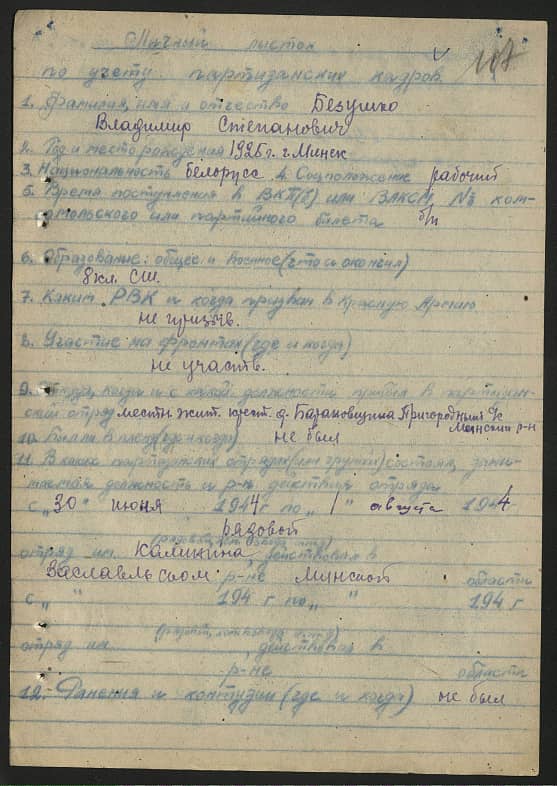 Личный листок
107
по учету партизанских кадров
1. Фамилия, имя и отчество Безушко
Владимир Степанович
2. Год и место рождения 1926 г. г. Минск
3. Национальность белорусс 4. Соцположение рабочий
5. Время поступления в ВКП(б) или ВЛКСМ, № ком-
сомольского или партийного билета б/п
6. Образование: общее и военное (что окончил)
8 кл. СШ.
7. Каким РВК и когда призван в Красную Армию
не призыв.
8. Участие на фронтах (где и когда)
не участв.
9. Откуда, когда и с какой должности прибыл в партизан-
ский отряд местн. жит. крест. д. Бараковщина Пригородный с/с
Минский р-н
10. Был ли в плену (где и когда) не был
11. В каких партизанских отрядах (или группах) состоял, зани-
маемая должность и р-н действия отряда
с „30" июня 1944 г по „1" августа 1944
рядовой
(рядовой, командир и т.д.)
отряд им. Калинина, действовал в
Заславльском р-не Минской области
с „ " 194 г по „ " 194 г
(рядовой, командир и т.д.)
отряд им. , действовал в
р-не области
12. Ранения и контузии (где и когда) не был